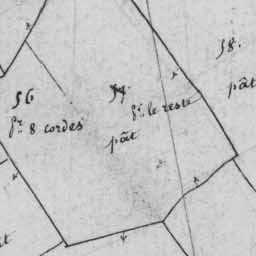 56
pr. 8 cordes
57.
pr. le reste
pât
58.
pât